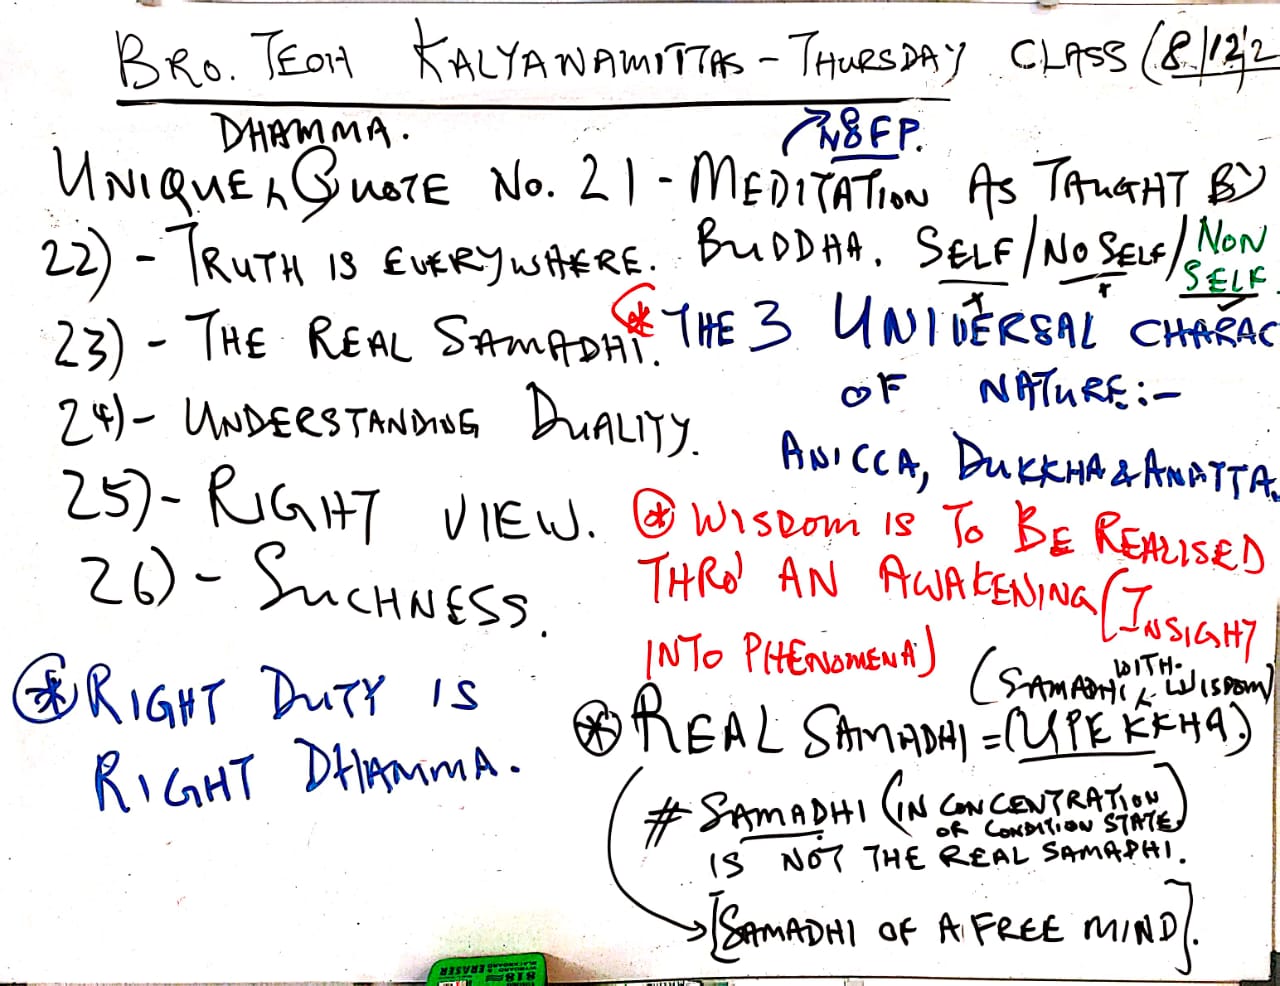 BRO. TEOH KALYANAMITTAS - THURSDAY CLASS (8/12/2
DHAMMA.
N8FP.
UNIQUE QUOTE No. 21 - MEDITATION AS TAUGHT BY
BUDDHA. SELF/NO SELF/NON SELF.
22) - TRUTH IS EVERYWHERE.
23) - THE REAL SAMADHI.
24) - UNDERSTANDING DUALITY.
25) - RIGHT VIEW.
26) - SUCHNESS.
* RIGHT DUTY IS
RIGHT DHAMMA.
* THE 3 UNIVERSAL CHARAC
OF NATURE:-
ANICCA, DUKKHA & ANATTA.
* WISDOM IS TO BE REALISED
THRO' AN AWAKENING (INSIGHT
INTO PHENOMENA)
(SAMADHI WITH WISDOM)
* REAL SAMADHI = (UPEKKHA.)
# SAMADHI (IN CONCENTRATION
OR CONDITION STATE)
IS NOT THE REAL SAMADHI.
[SAMADHI OF A FREE MIND].
818
ERASER